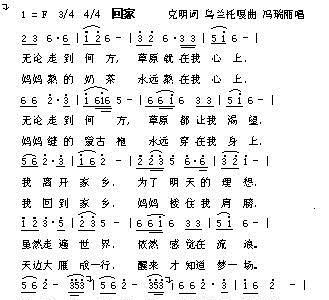 1 = F 3/4 4/4 回家 克明词 乌兰托嘎曲 冯瑞丽唱
2 3 6 · 6 | 1 2 6 - | 6 6 · 2 3 · 3 | 5 1 6 - |
无论走到何方, 草原就在我心上.
妈妈熬的奶茶 永远熬在我心上.
6 6 2 · 3 | 1 6 1 6 5 - | 6 6 1 6 3 3 | 5 1 6 - |
无论走到何方, 草原都让我渴望.
妈妈缝的蒙古袍 永远穿在我身上.
5 6 2 · 3 | 1 6 2 - | 2 2 3 5 6 · 6 | 3 2 1 - |
我离开家乡. 为了明天的理想.
我回到家乡. 妈妈搂住我肩膀.
1 2 3 · 5 | 2 3 5 - | 6 6 1 6 3 3 | 5 1 6 - |
虽然走遍世界. 依然感觉在流浪。
天边大雁成一行, 醒来才知道梦一场。
5 6 2 - 3 5 3 | 5 6 2 - 3 5 3 | 5 6 2 · 3 | 1 2 6 - |